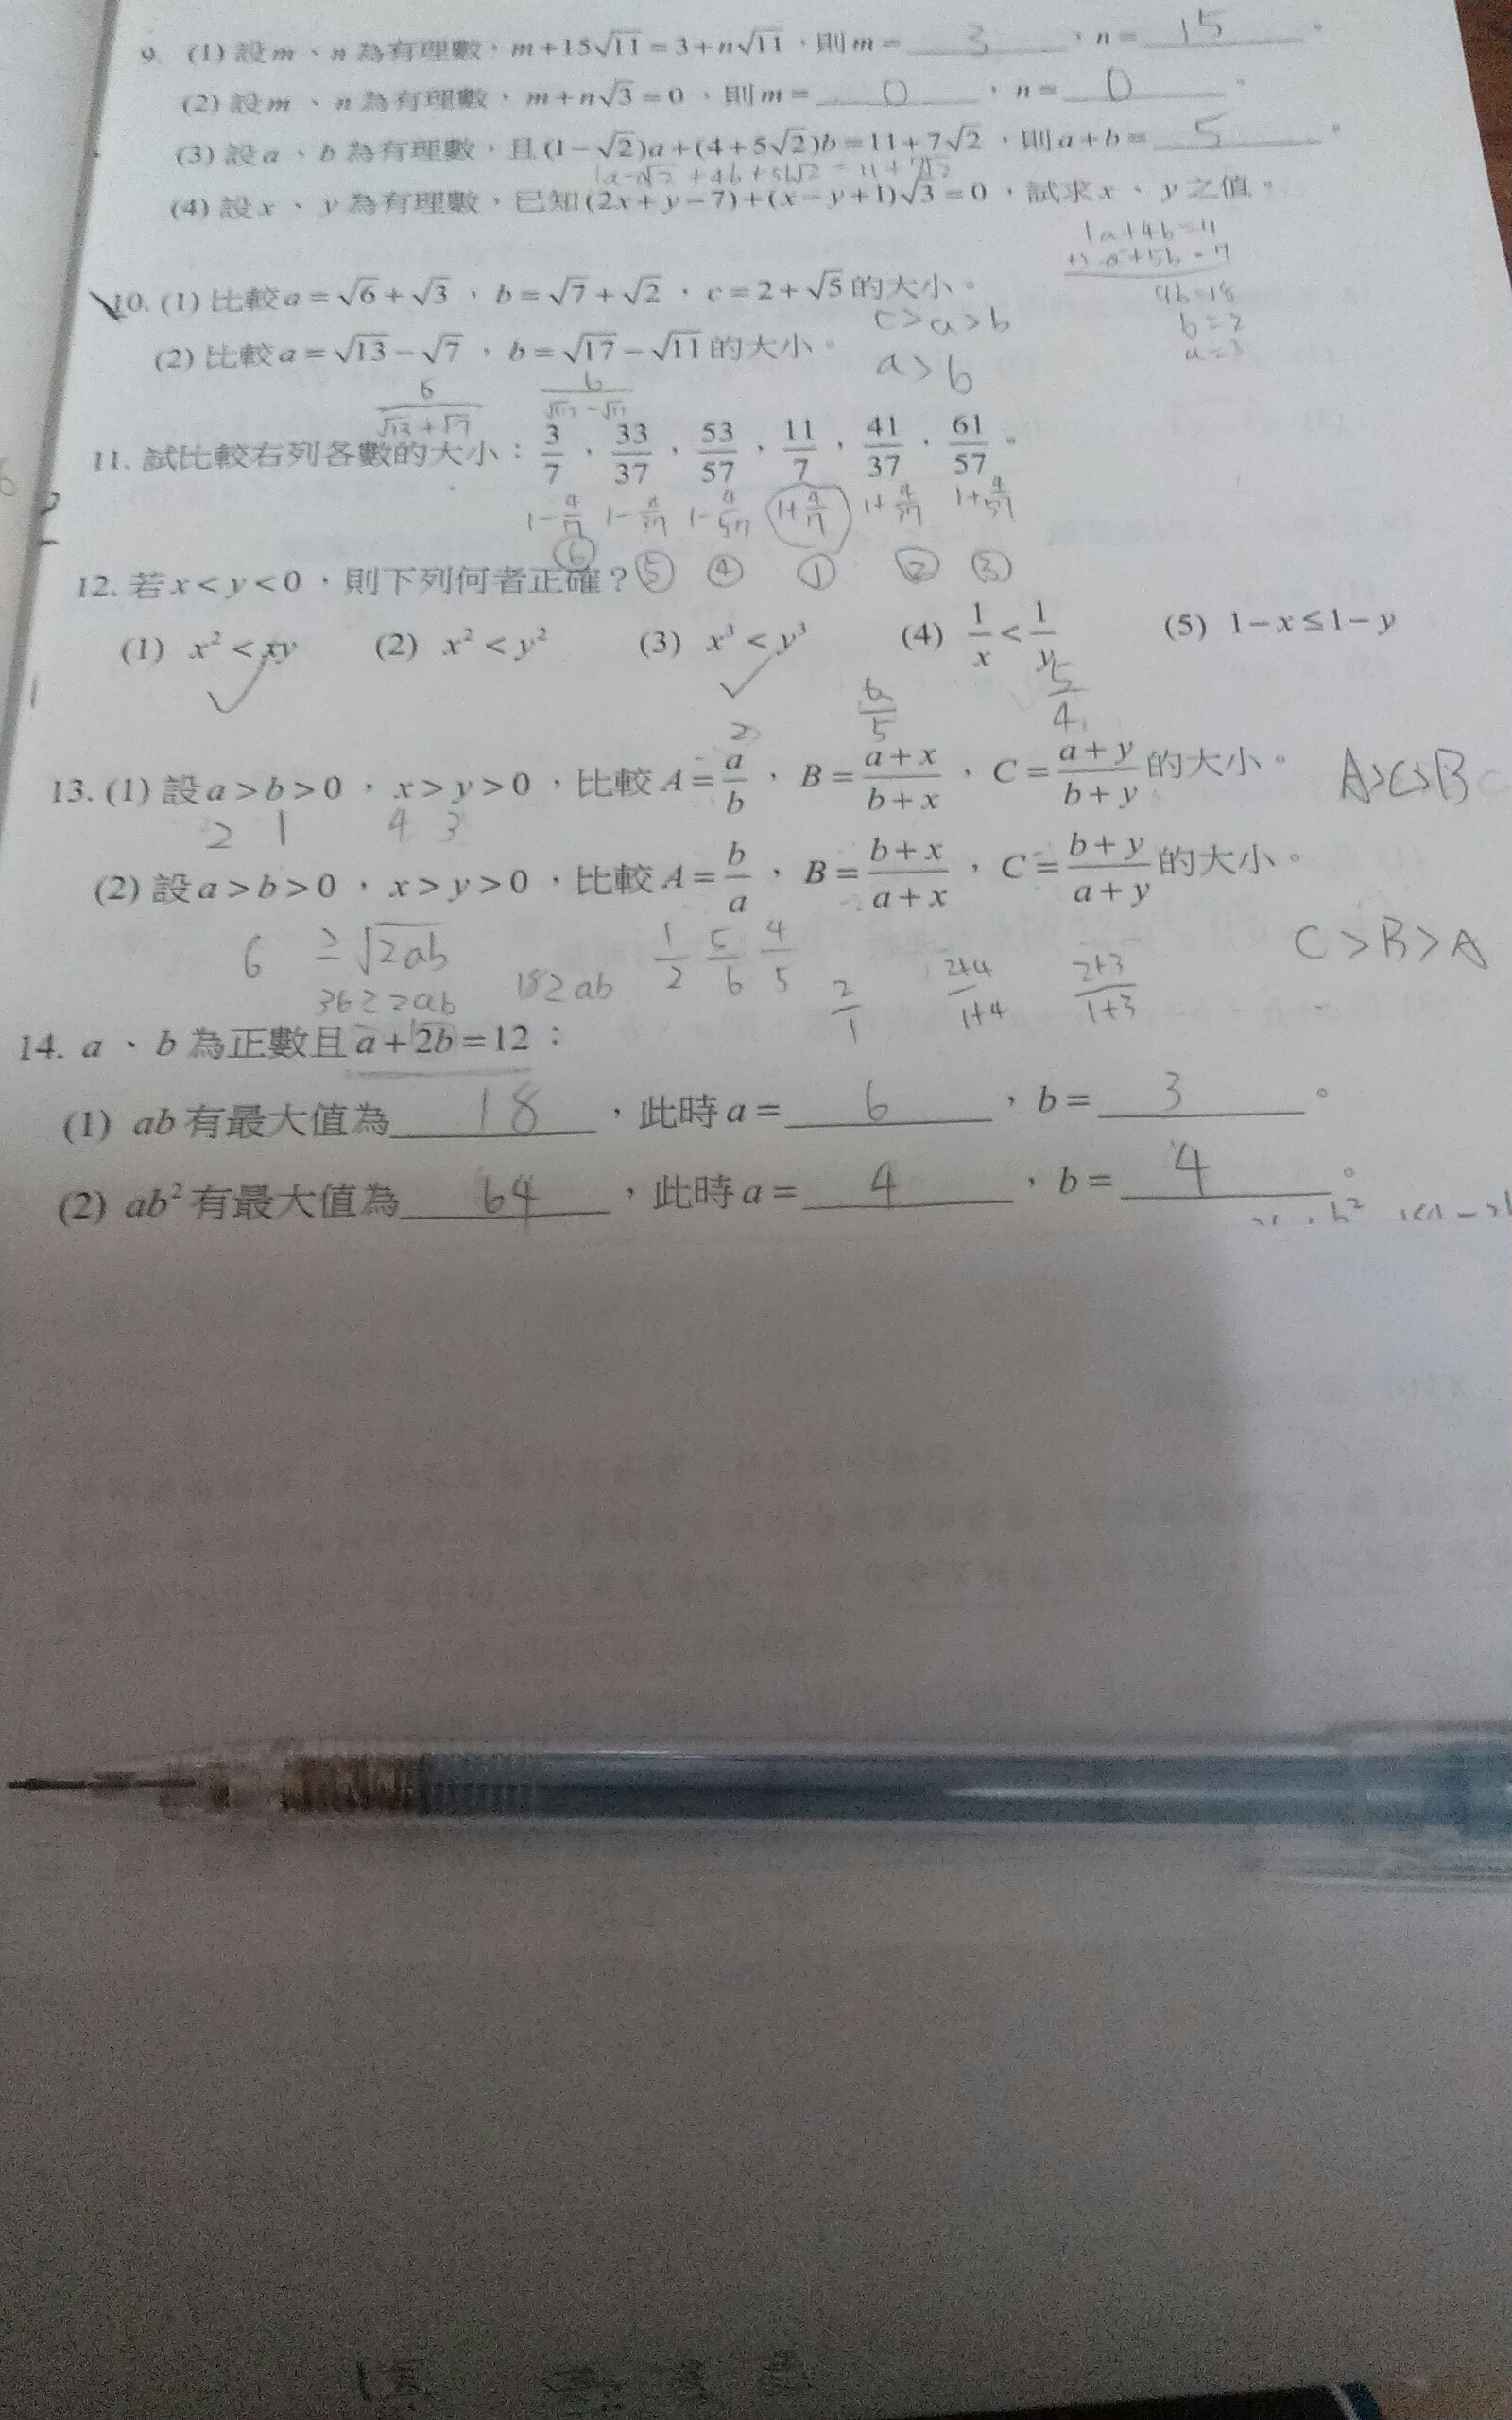 9. (1) 設 m、n 為有理數，m+15√11=3+n√11，則 m= 3 ，n= 15 。
(2) 設 m、n 為有理數，m+n√3=0，則 m= 0 ，n= 0 。
(3) 設 a、b 為有理數，且(1-√2)a+(4+5√2)b=11+7√2，則 a+b= 5 。
(4) 設 x、y 為有理數，已知(2x+y-7)+(x-y+1)√3=0，試求 x、y 之值。
1a+4b=11
9b=18
b=2
a=3
10. (1) 比較 a=√6+√3，b=√7+√2，c=2+√5 的大小。
c>a>b
(2) 比較 a=√13-√7，b=√17-√11 的大小。 a>b
6/(√13+√7)
11. 試比較右列各數的大小：3/7，33/37，53/57，11/7，41/37，61/57。
1-4/7 1-4/37 1-4/57 1+4/7 1+4/37 1+4/57
⑥ ⑤ ④ ① ② ③
12. 若 x<y<0，則下列何者正確？
(1) x²<xy (2) x²<y² (3) x³<y³ (4) 1/x<1/y (5) 1-x≤1-y
✓ ✓
2 6/5 5/4
13. (1) 設 a>b>0，x>y>0，比較 A=a/b，B=(a+x)/(b+x)，C=(a+y)/(b+y) 的大小。 A>C>B
2 1 4 3
(2) 設 a>b>0，x>y>0，比較 A=b/a，B=(b+x)/(a+x)，C=(b+y)/(a+y) 的大小。
C>B>A
6 ≥√2ab 1/2 5/6 4/5
36≥2ab 18≥ab 2/1 (2+4)/(1+4) (2+3)/(1+3)
14. a、b 為正數且 a+2b=12：
(1) ab 有最大值為 18 ，此時 a= 6 ，b= 3 。
(2) ab² 有最大值為 64 ，此時 a= 4 ，b= 4 。